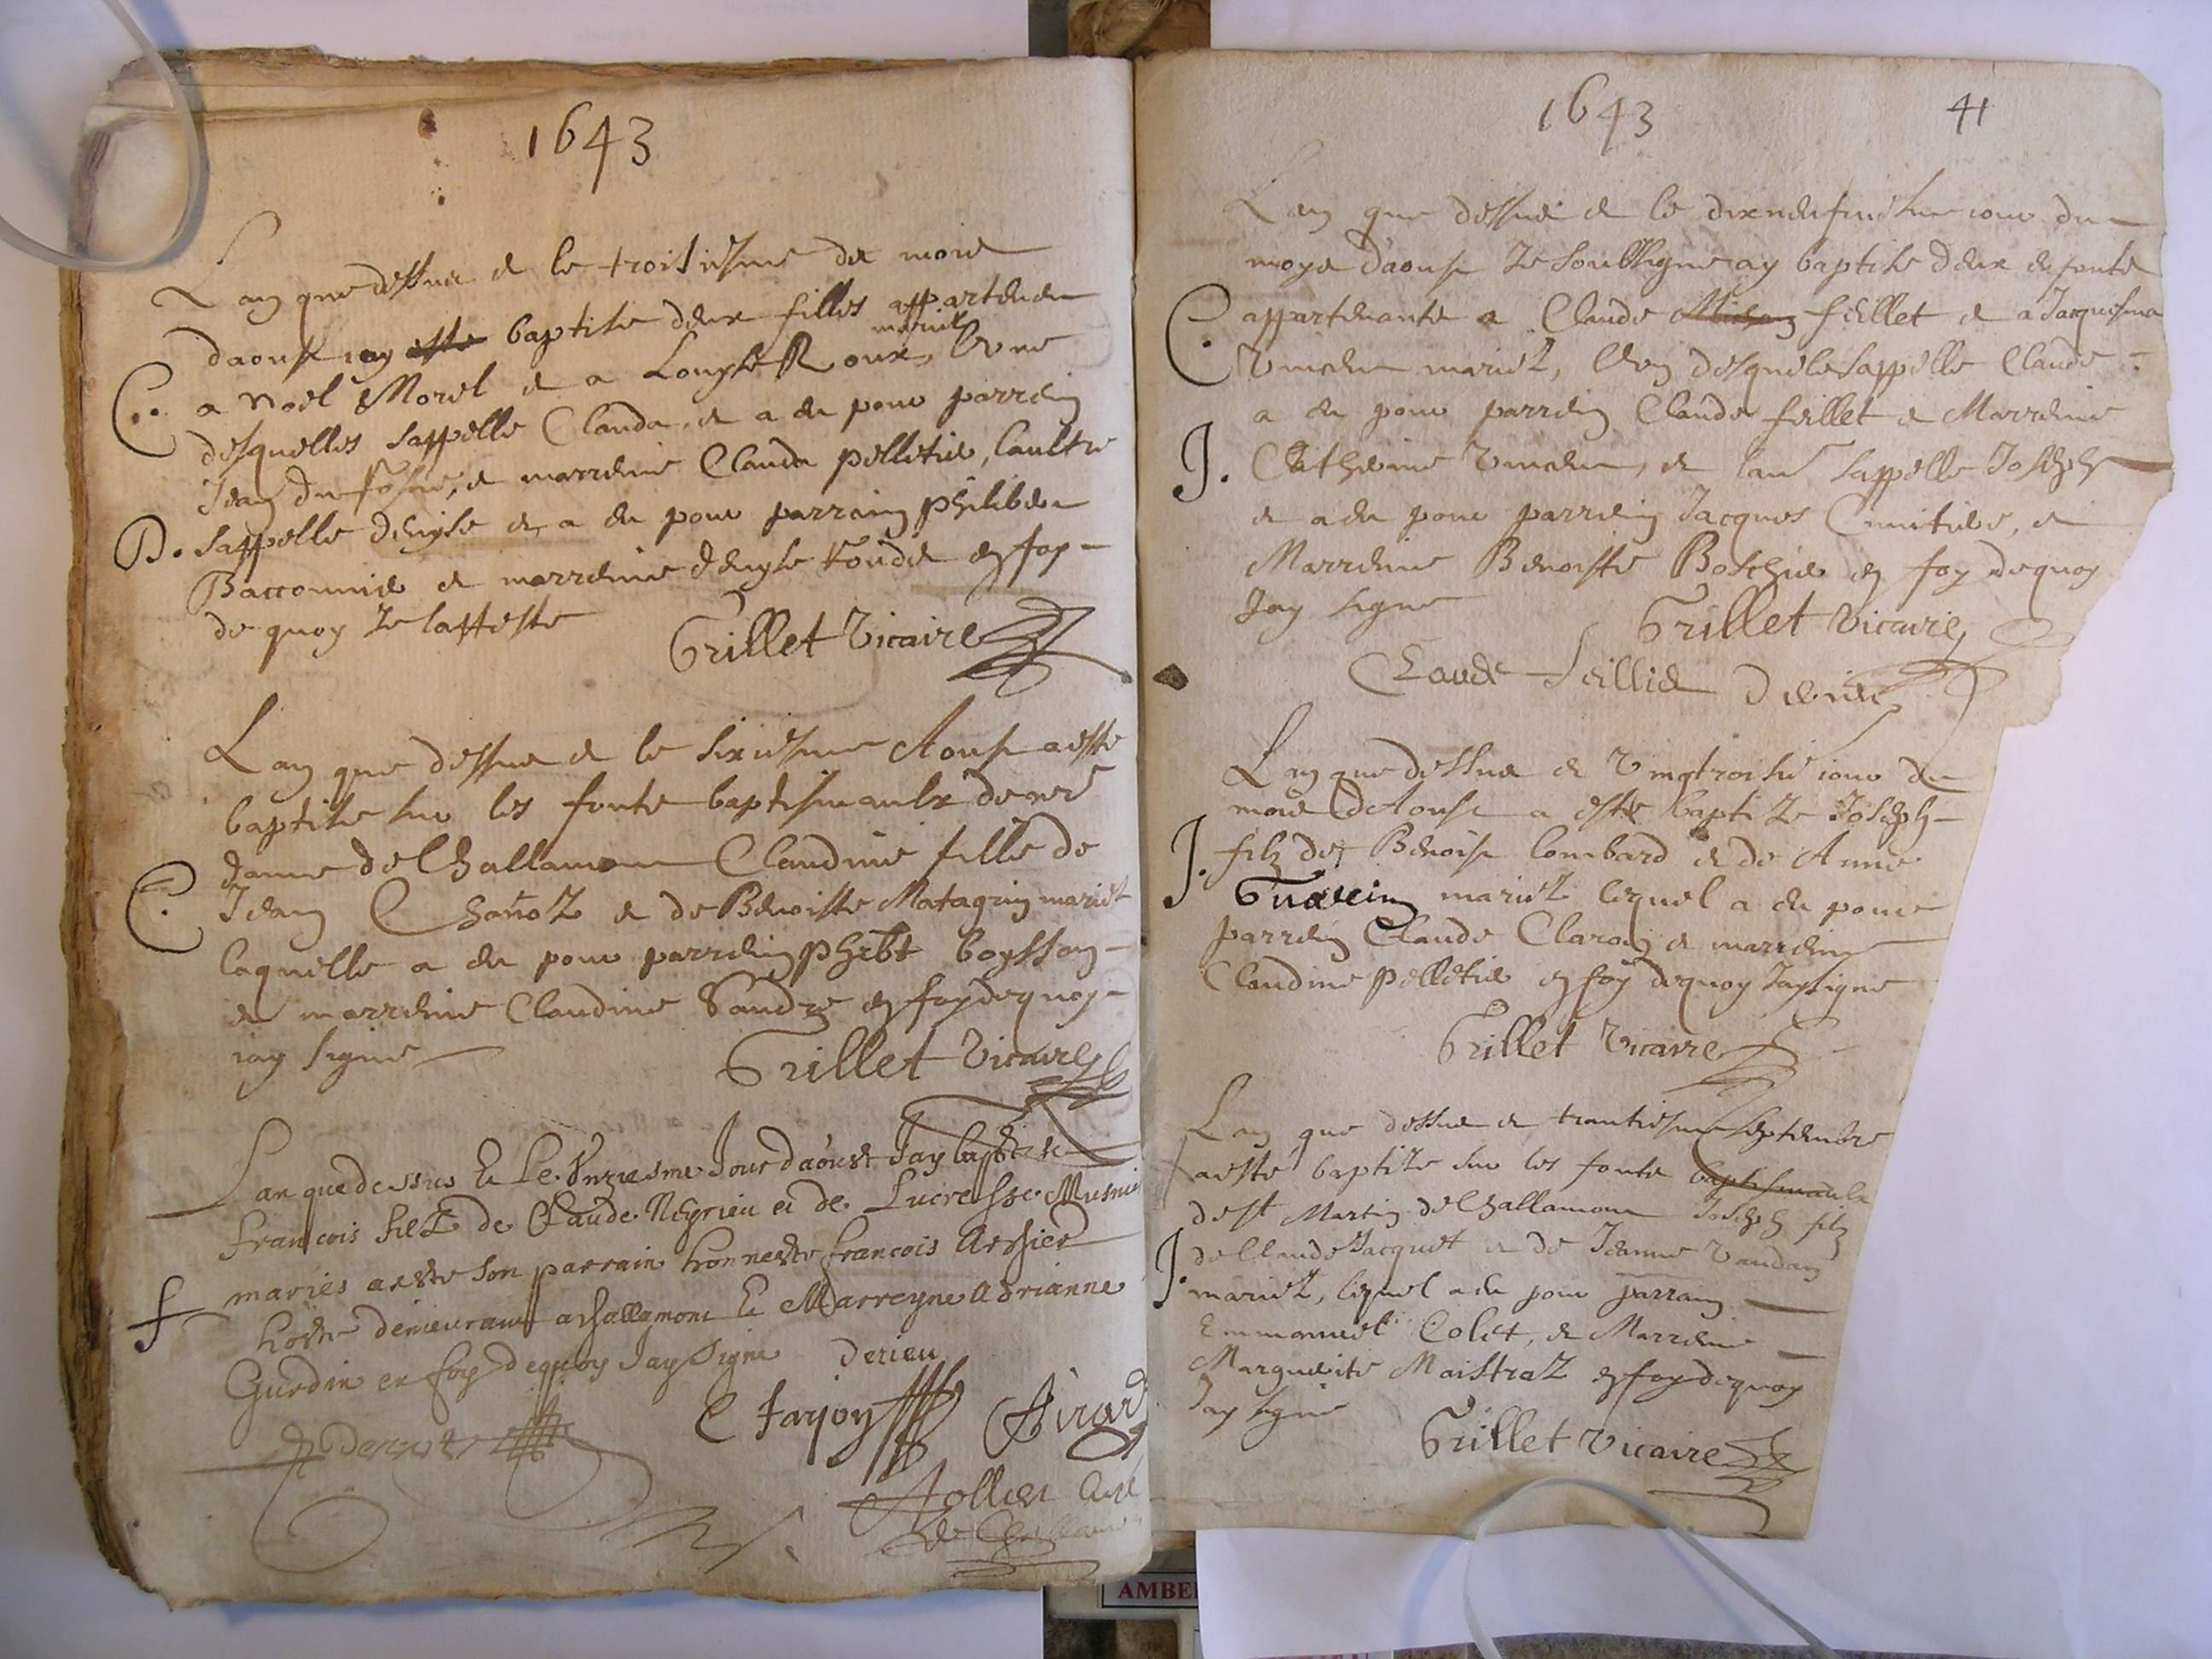 1643
Lan que dessus et le troisiesme de mois
daoust iay este baptise deux filles appartenen
mariez
C. a Noel Morel et a Louyse Roux, lune
desquelles sappelle Clauda, et a eu pour parrein
Jean du et marreine Clauda pelletier, laultre
D. sappelle denyse et a eu pour parrain philiber
et marreine denyse en foy
de quoy Je latteste
Grillet Vicaire
Lan que dessus et le sixiesme Aoust a este
baptise sur les fonts baptismaulx de nre
dame de Challamont Claudine fille de
C. Jean Chanoz et de Benoiste Matagrin mariez
laquelle a eu pour parrein phibt boysson
et marreine Claudine en foy de quoy
iay signe
Grillet Vicaire
Lan que dessus Et Le Unziesme Jour daoust Jay baptise
francois filz de Claude Neyrieu et de Lucresse Musnie
maries a este son parrain honneste francois
f hoste demeurant a challamont Et Marreyne adrianne
Guedin en foy de quoy Jay Signe derieu
C Farjon Girard
Cure
de
1643
41
Lan que dessus et le dixneufviesme iour du
moys daoust Je soubsigne ay baptise deux enfants
C. appartenants a Claude feillet et a Jaquema
mariez, lun desquels sappelle Claude
a eu pour parrein Claude feillet et Marreine
J. Catherine et lau sappelle Joseph
et a eu pour parrein Jacques et
Marreine Benoiste en foy de quoy
Jay signe
Grillet Vicaire
Claude feillie
Lan que dessus et Vingtroisie iour du
mois dAoust a este baptize Joseph
J. filz de Benoist lombard et de Anne
Guerin mariez lequel a eu pour
parrein Claude et marreine
Claudine pelletier en foy de quoy Jay signe
Grillet Vicaire
Lan que dessus et trantiesme septembre
a este baptize sur les fonts baptismaulx
de st Martin de Challamont Joseph filz
J. de Claude Jacquet et de Jeanne Vaudan
mariez, lequel a eu pour parrain
Emmanuel Colet, et Marreine
Marguerite Maistraz en foy de quoy
Jay signe
Grillet Vicaire
AMBE